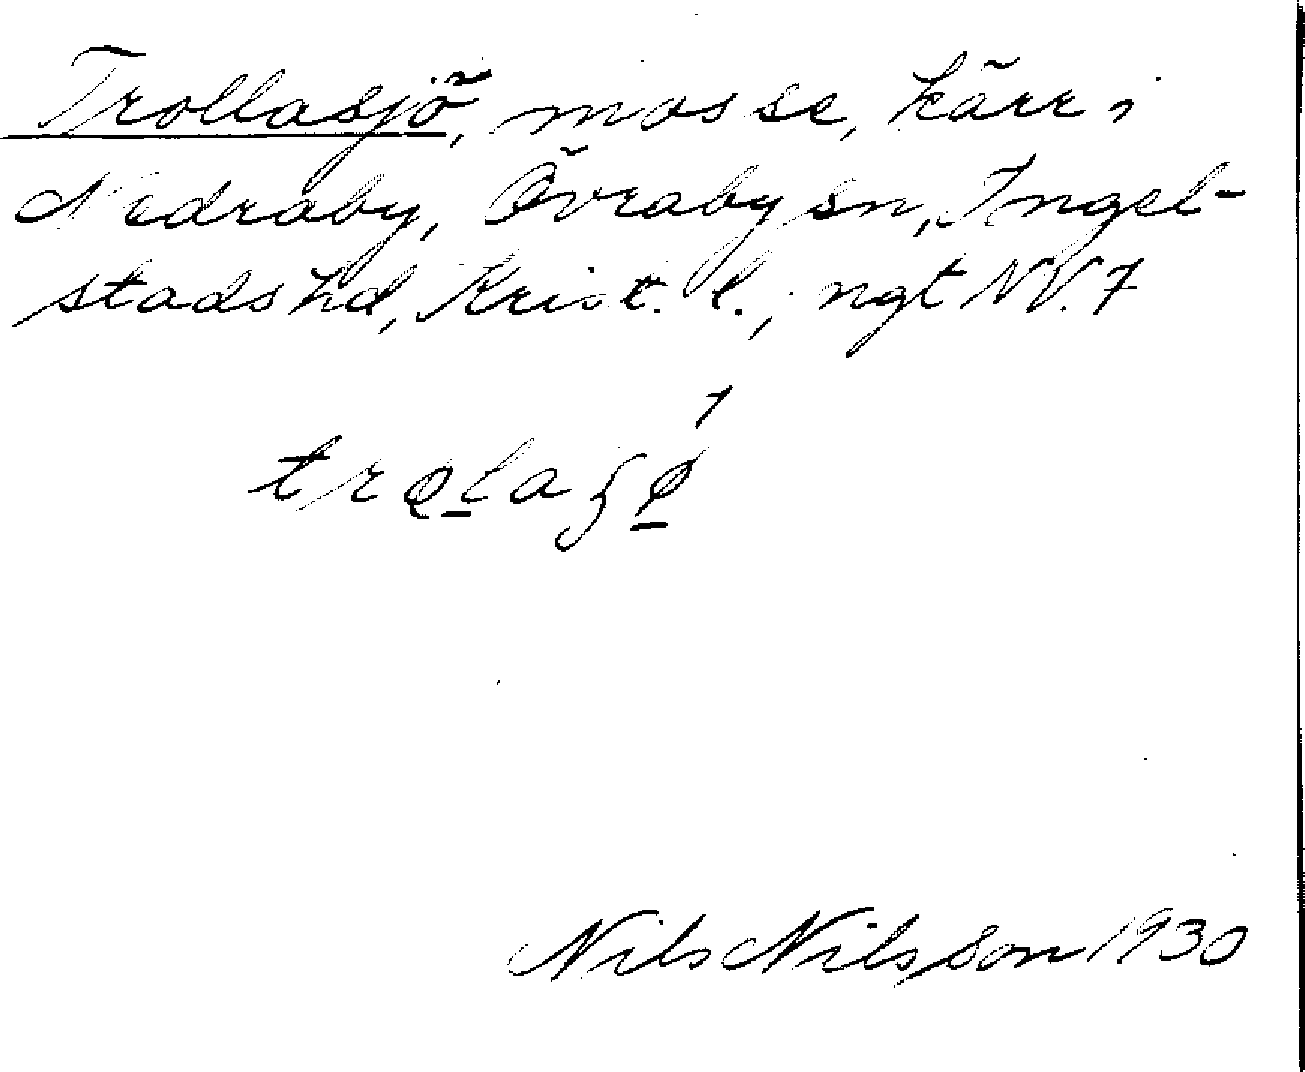 Trollasjö, mosse, kärr i
Nedraby, Övraby sn, Ingel-
stads hd, Krist. l., ngt NV. 7
Nils Nilsson 1930